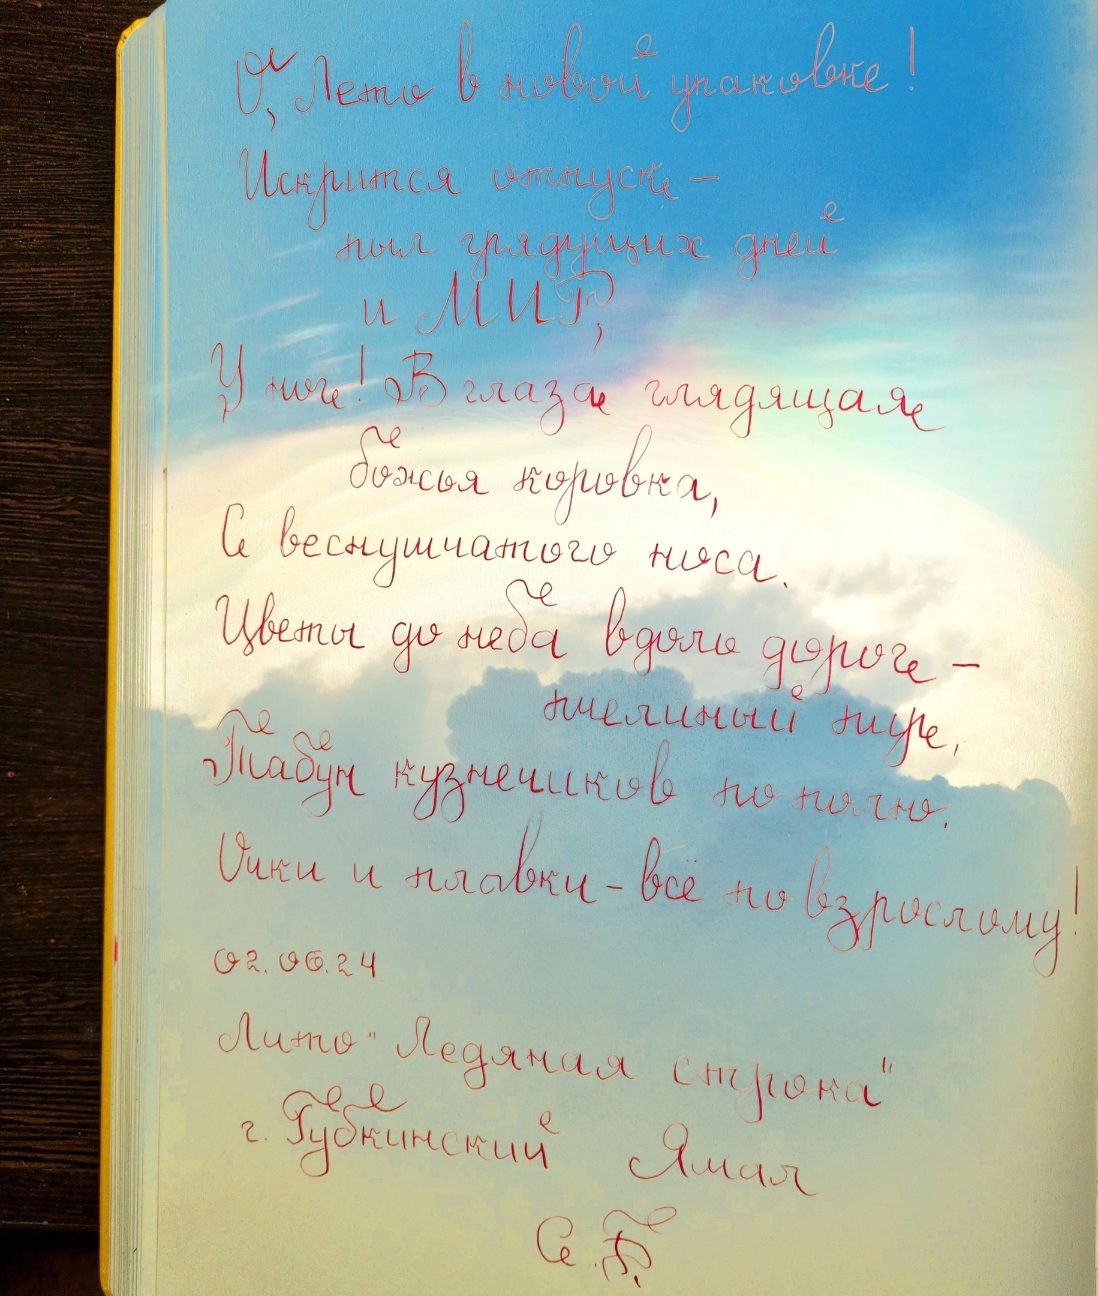 О, Лето в новой упаковке!
Искрится отпуск –
пыл грядущих дней
и МИР,
У ног! В глаза глядящая
божья коровка,
С веснушчатого носа.
Цветы до неба вдоль дорог –
пчелиный пир,
Табун кузнечиков по полю.
Очки и плавки – всё по взрослому!
02.06.24
Лито "Ледяная строка"
г. Губкинский Ямал
С.Б.